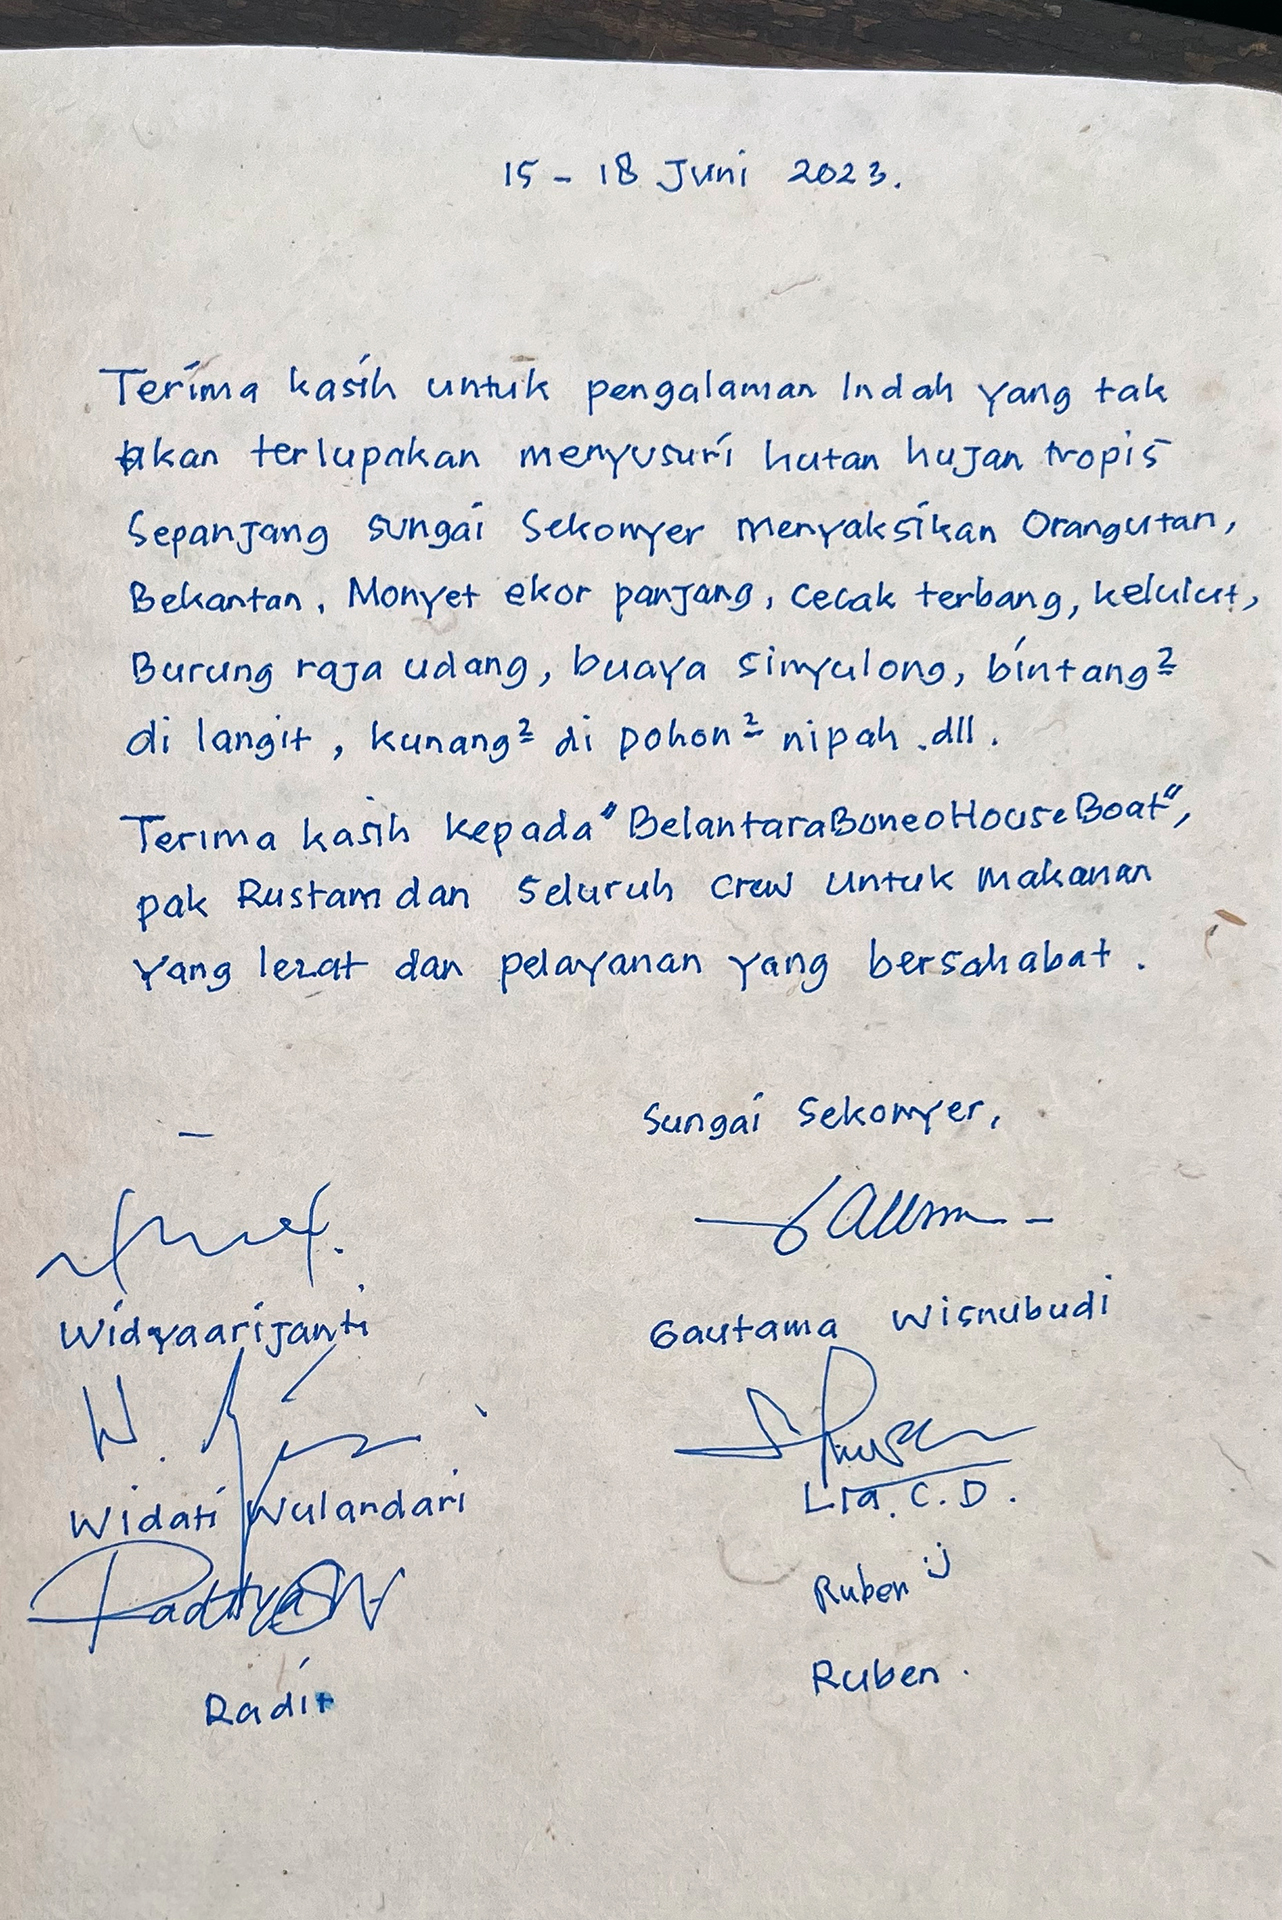 15 - 18 Juni 2023.
Terima kasih untuk pengalaman Indah yang tak
akan terlupakan menyusuri hutan hujan tropis
Sepanjang sungai Sekonyer menyaksikan Orangutan,
Bekantan, Monyet ekor panjang, cecak terbang, kelulut,
Burung raja udang, buaya sinyulong, bintang²
di langit, kunang² di pohon² nipah .dll.
Terima kasih kepada "BelantaraBoneoHouseBoat",
pak Rustam dan seluruh crew untuk makanan
yang lezat dan pelayanan yang bersahabat.
Sungai Sekonyer,
Widyaarijanti
Gautama Wisnubudi
Widati Wulandari
Lia. C. D.
Ruben :)
Radit
Ruben.